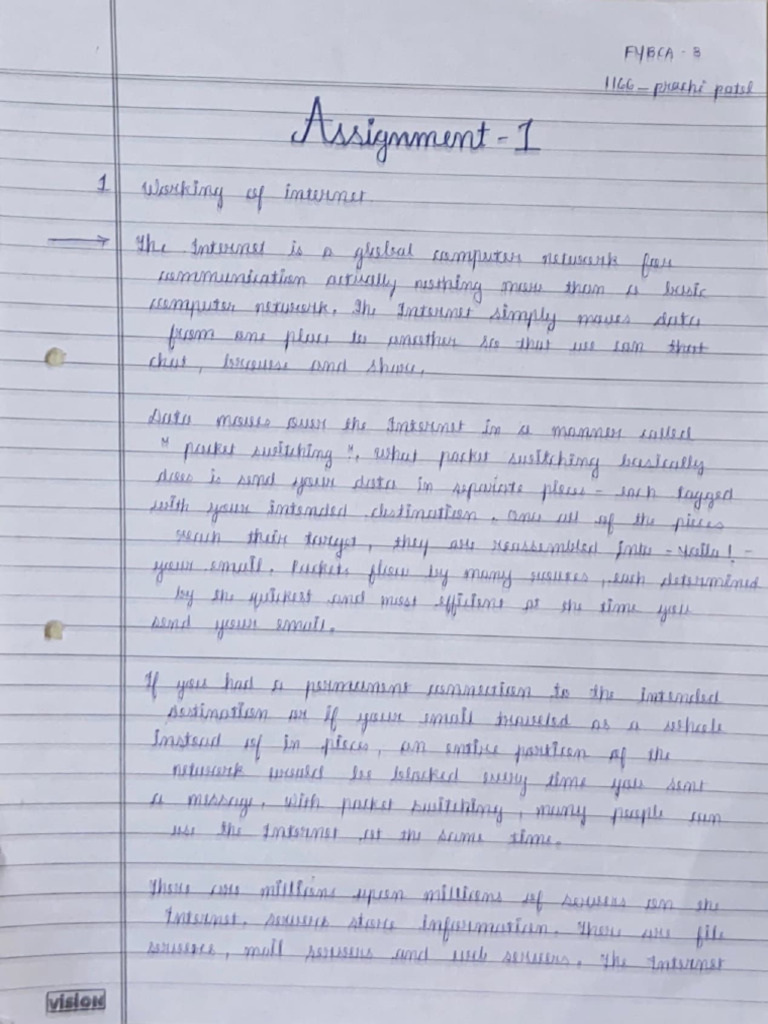 FYBCA - B
1166 - prachi patel
Assignment - 1
1 Working of internet.
→ The Internet is a global computer network for
communication actually nothing more than a basic
computer network. The Internet simply moves data
from one place to another so that we can that
chat, browse and share.
Data moves over the Internet in a manner called
" packet switching ". what packet switching basically
does is send your data in separate pieces - each tagged
with your intended destination. Once all of the pieces
reach their target, they are reassembled into - voila! -
your email. Packets flow by many routes, each determined
by the quickest and most efficient at the time you
send your email.
If you had a permanent connection to the intended
destination or if your email traveled as a whole
instead of in pieces, an entire portion of the
network would be blocked every time you sent
a message. With packet switching, many people can
use the Internet at the same time.
There are millions upon millions of servers on the
Internet. servers store information. There are file
servers, mail servers and web servers. The Internet
vision